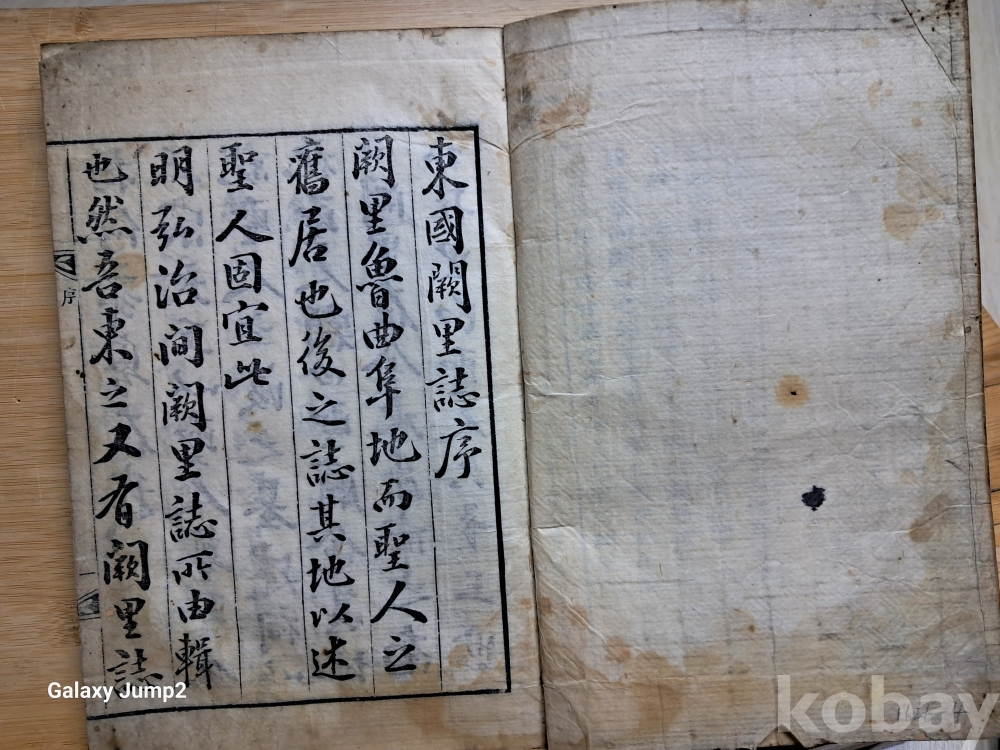 東國闕里誌序
闕里魯曲阜地而聖人之
舊居也後之誌其地以述
聖人固宜此
明弘治间闕里誌所由輯
也然吾東之又有闕里誌
序
一
Galaxy Jump2
kobay